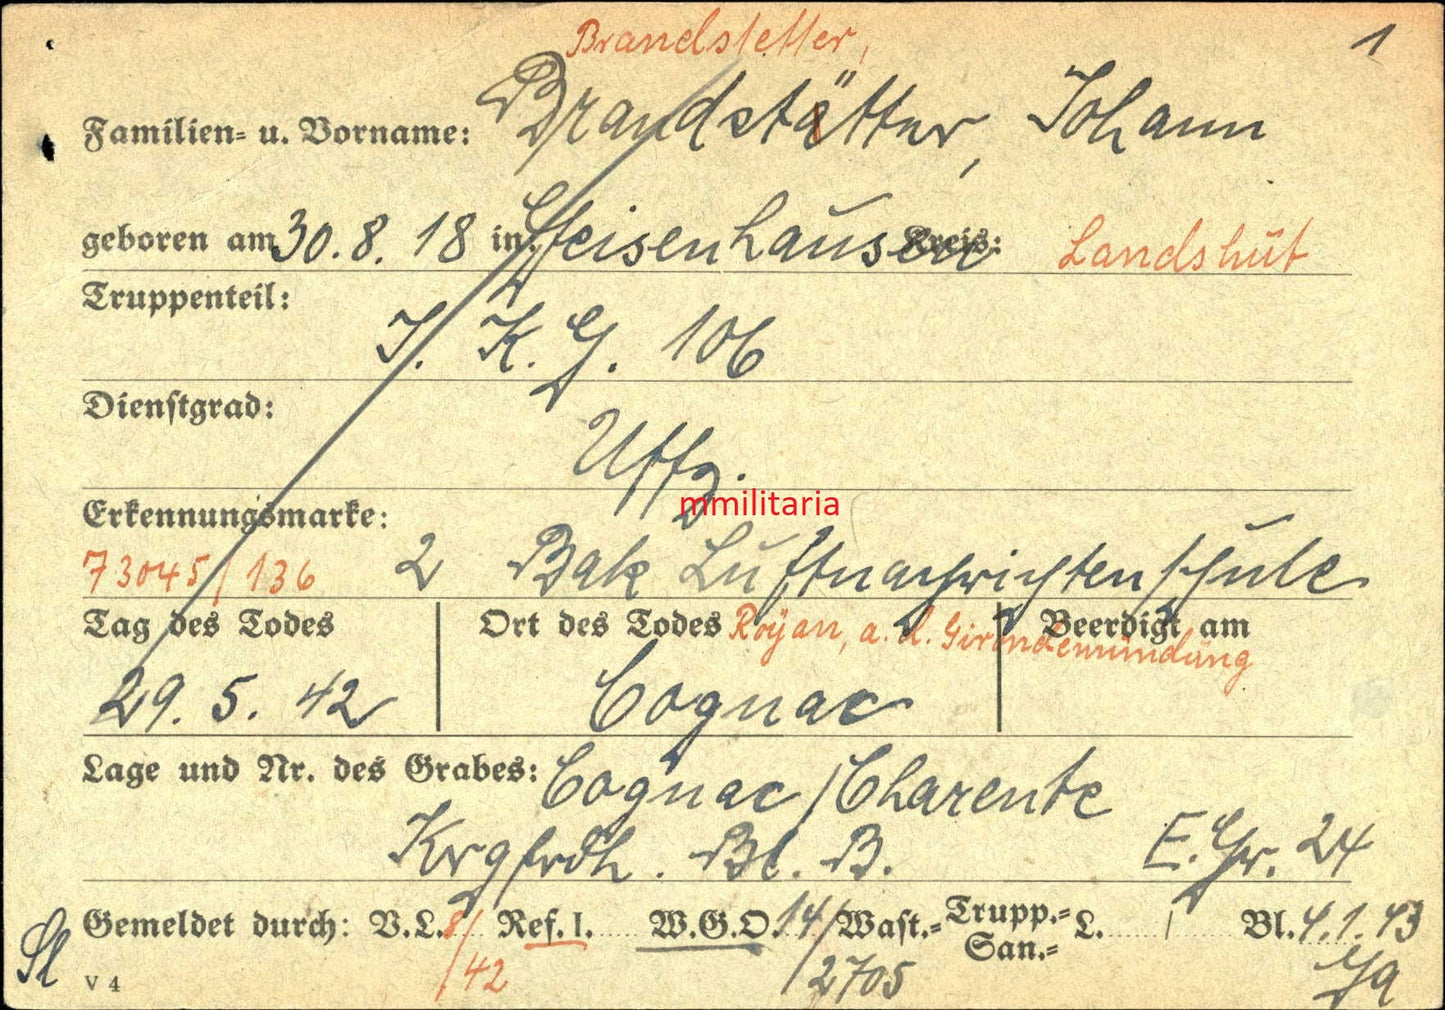 Brandstetter,
1
Familien- u. Vorname: Brandstätter, Johann
geboren am 30.8.18 in Geisenhausen Kreis: Landshut
Truppenteil:
I. K.G. 106
Dienstgrad:
Uffz.
mmilitaria
Erkennungsmarke:
73045/136 2 Bak Luftnachrichtenschule
Tag des Todes Ort des Todes Royan, a. d. Girondemündung Beerdigt am
29. 5. 42 Cognac
Lage und Nr. des Grabes: Cognac/Charente
Krgfrdh. Bl. B. E. Gr. 24
Gemeldet durch: V.L. 8/42 Ref. I. W.G.O. 14/2705 Wast.- Trupp.- San.- L. / Bl. 4.1.43
V 4